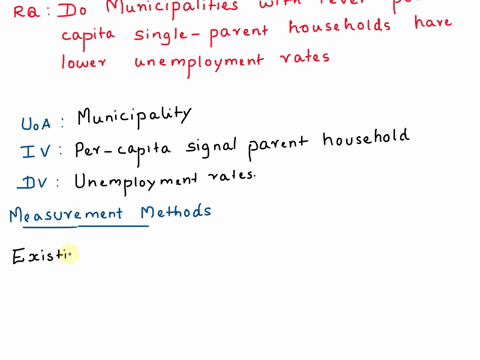 RQ: Do Municipalities with
capita single-parent households have
lower unemployment rates
UoA: Municipality
IV: Per-capita signal parent household
DV: Unemployment rates.
Measurement Methods
Existi